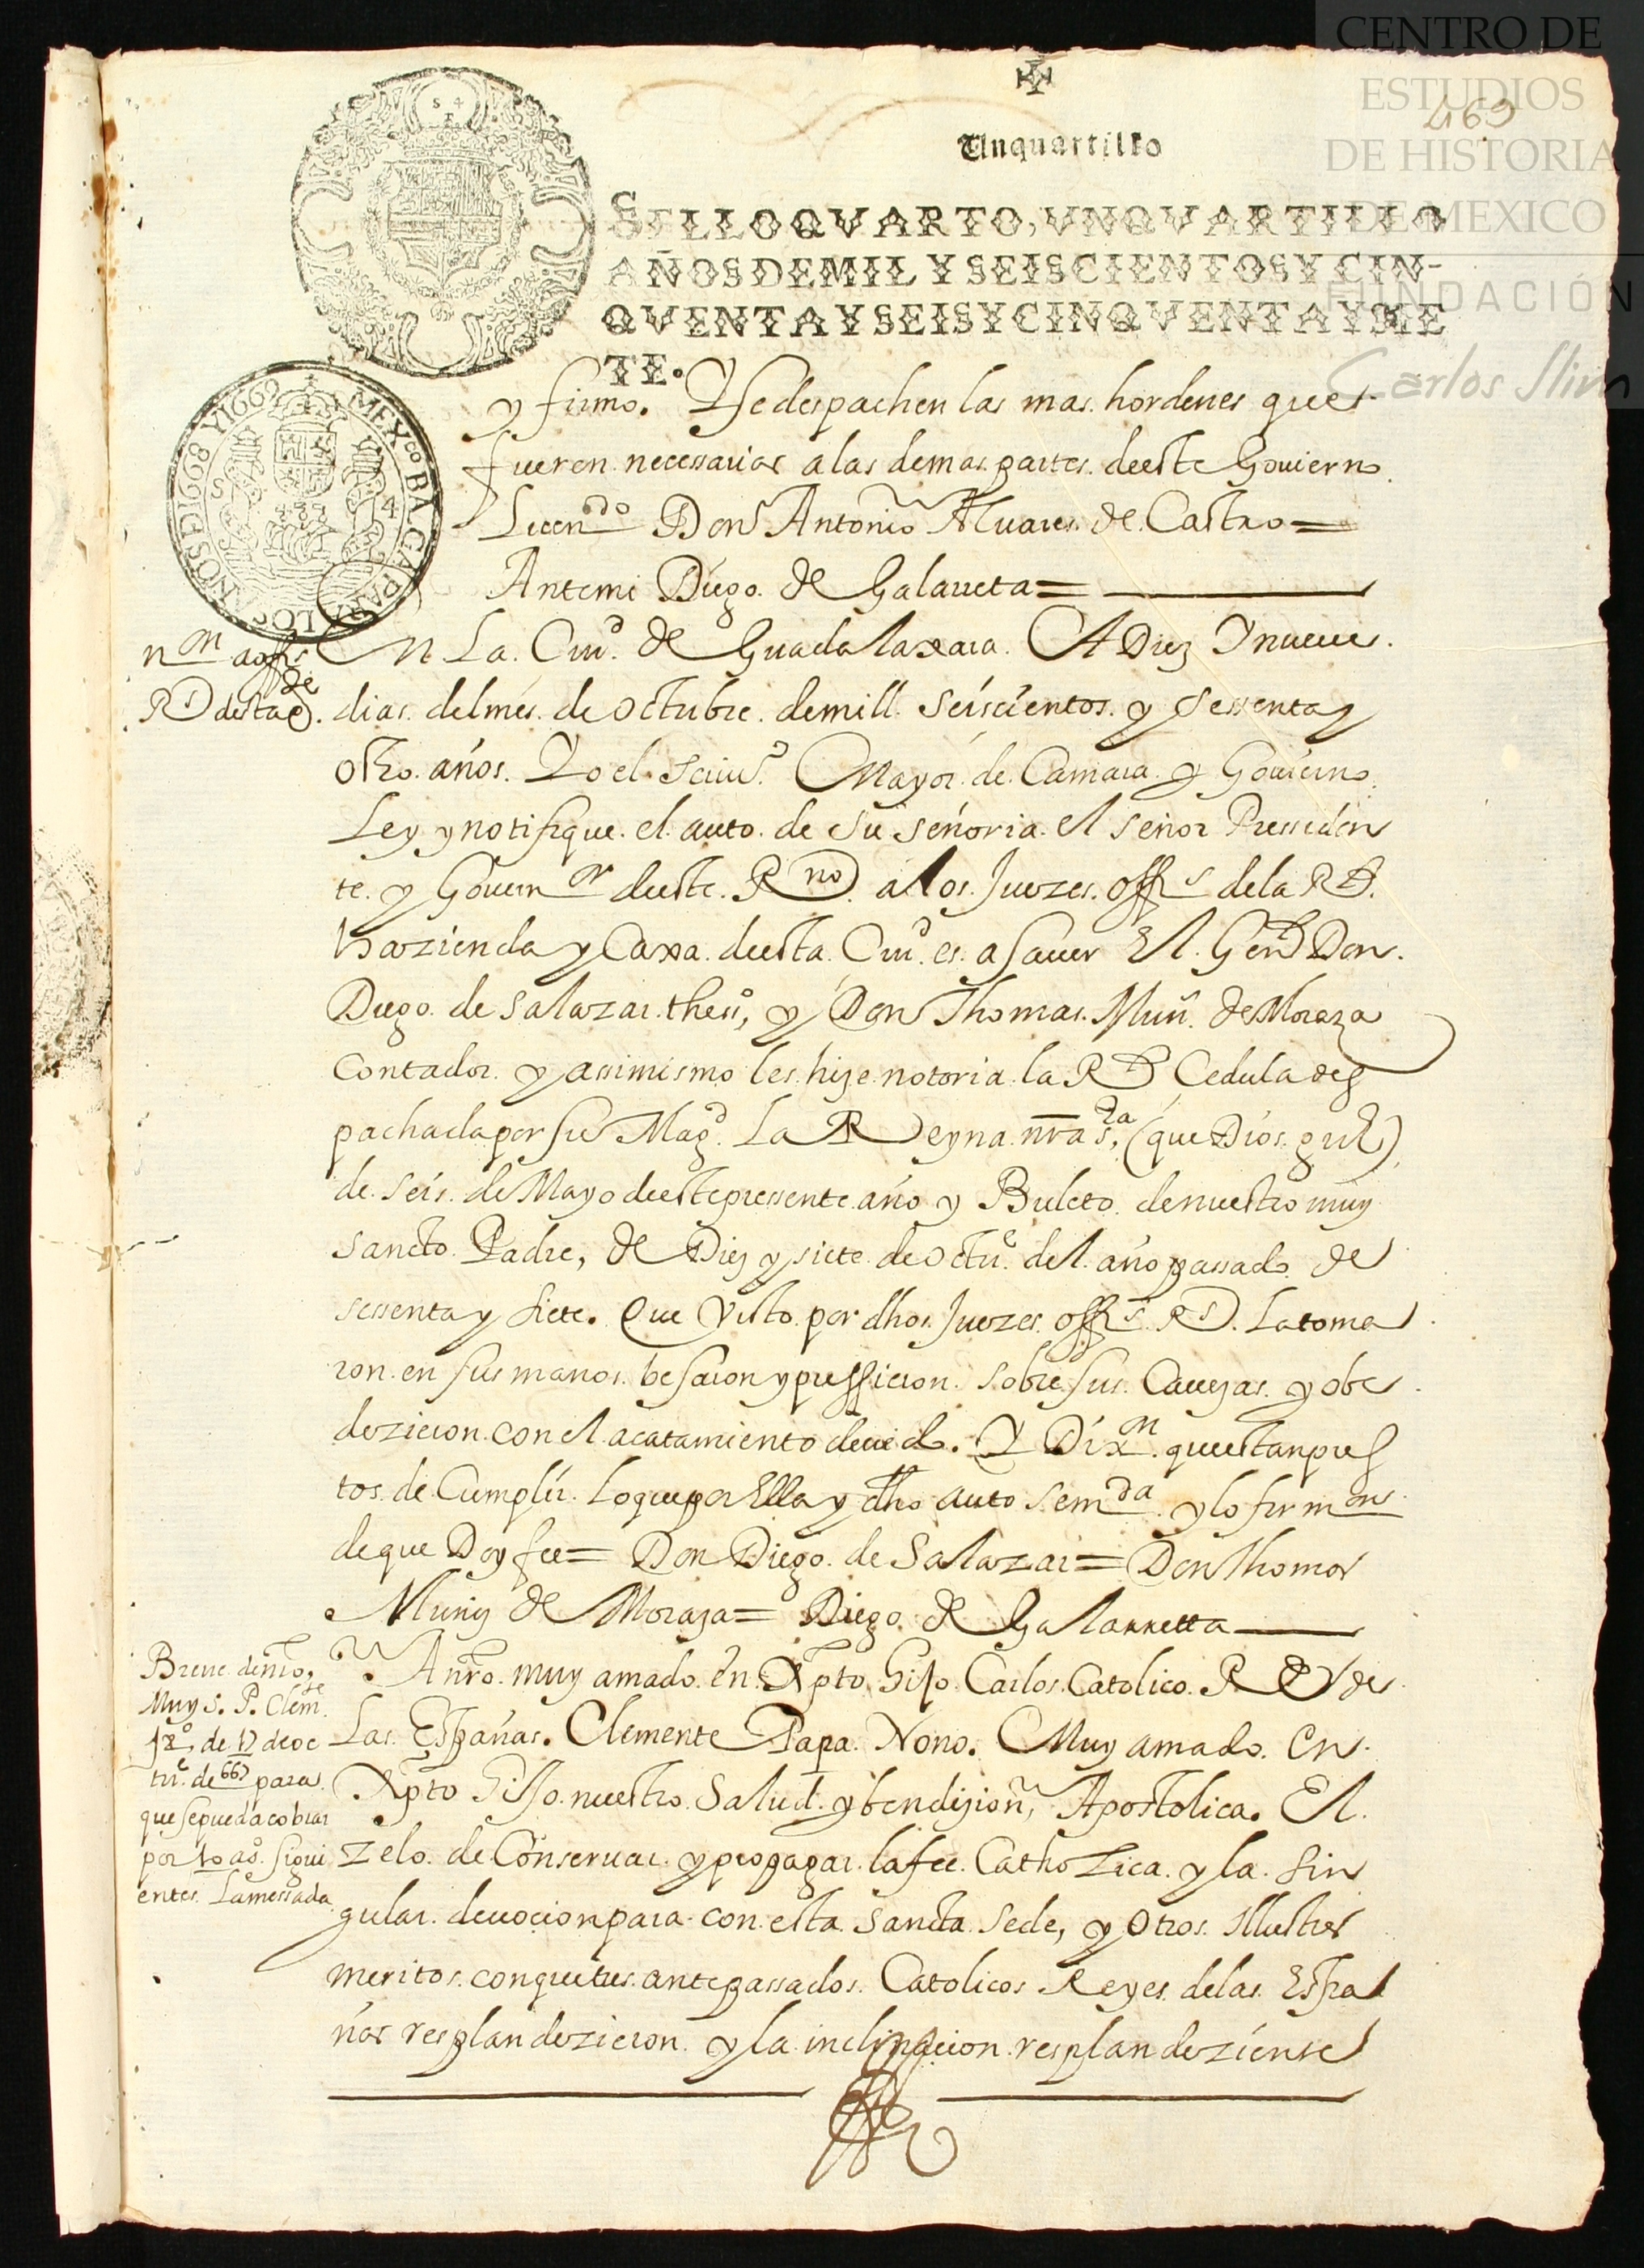 CENTRO DE
ESTUDIOS
DE HISTORIA
DE MEXICO
FUNDACIÓN
Carlos Slim
469
Vn quartillo
SELLO QVARTO, VN QVARTILLO
AÑOS DE MIL Y SEISCIENTOS Y CIN-
QVENTA Y SEIS Y CINQVENTA Y SIE
TE.
y firmo. Y se despachen las mas hordenes que
fueren necessarias a las demas partes deeste Govierno
Licendo Don Antonio Aluares de Castro=
Antemi Diego de Galarreta=
non a offs
Rs desta Cde.
En La Ciud. de Guadalaxara A Diez Y nueue
dias del mes de Octubre de mill seiscientos y sessenta y
otho años. Yo el scriuo. Mayor de Camara y Gouierno
Ley y notifique el auto de su señoria el señor Pressiden
te y Gouernor deeste Rno a los Juezes offs de la Rl
Hazienda y Caxa deesta Ciud. es a sauer El Genl Don
Diego de Salazar theso, y Don Thomas Muñ. de Moraza
Contador y assimismo les hize notoria la Rl Cedula des
pachada por su Magd. La Reyna nra sra, (que Dios gue)
de seis de Mayo deeste pressente año y Buleto de nuestro muy
sancto Padre, de Diez y siete de octue. del año passado de
sessenta y siete. Que Visto por dhos Juezes offs Rs. La toma
ron en sus manos besaron y pussieron sobre sus Cauezas y obe
dezieron con el acatamiento deuido. Y Dixon que estan pres
tos de Cumplir lo que por Ella y dho auto se mda y lo firmons
de que Doy fee= Don Diego de Salazar= Don Thomas
Muñiz de Moraza= Diego de Galarretta
Breue de nro
Muy S. P. Clemte
9o, de 17 de oc
tue. de 667 para
que se pueda cobrar
por 10 as. sigui
entes La messada
A nro muy amado en Xpto Hijo Carlos Catolico Rey de
Las Españas. Clemente Papa Nono. Muy amado en
Xpto Hijo nuestro Salud y bendizion Apostolica. El
zelo de Conseruar y propagar la fee Catholica y la sin
gular deuocion para con esta sancta sede, y otros Illustres
meritos con que tus antepassados Catolicos Reyes de las Espa
ñas resplandezieron y la inclinacion resplandeziente